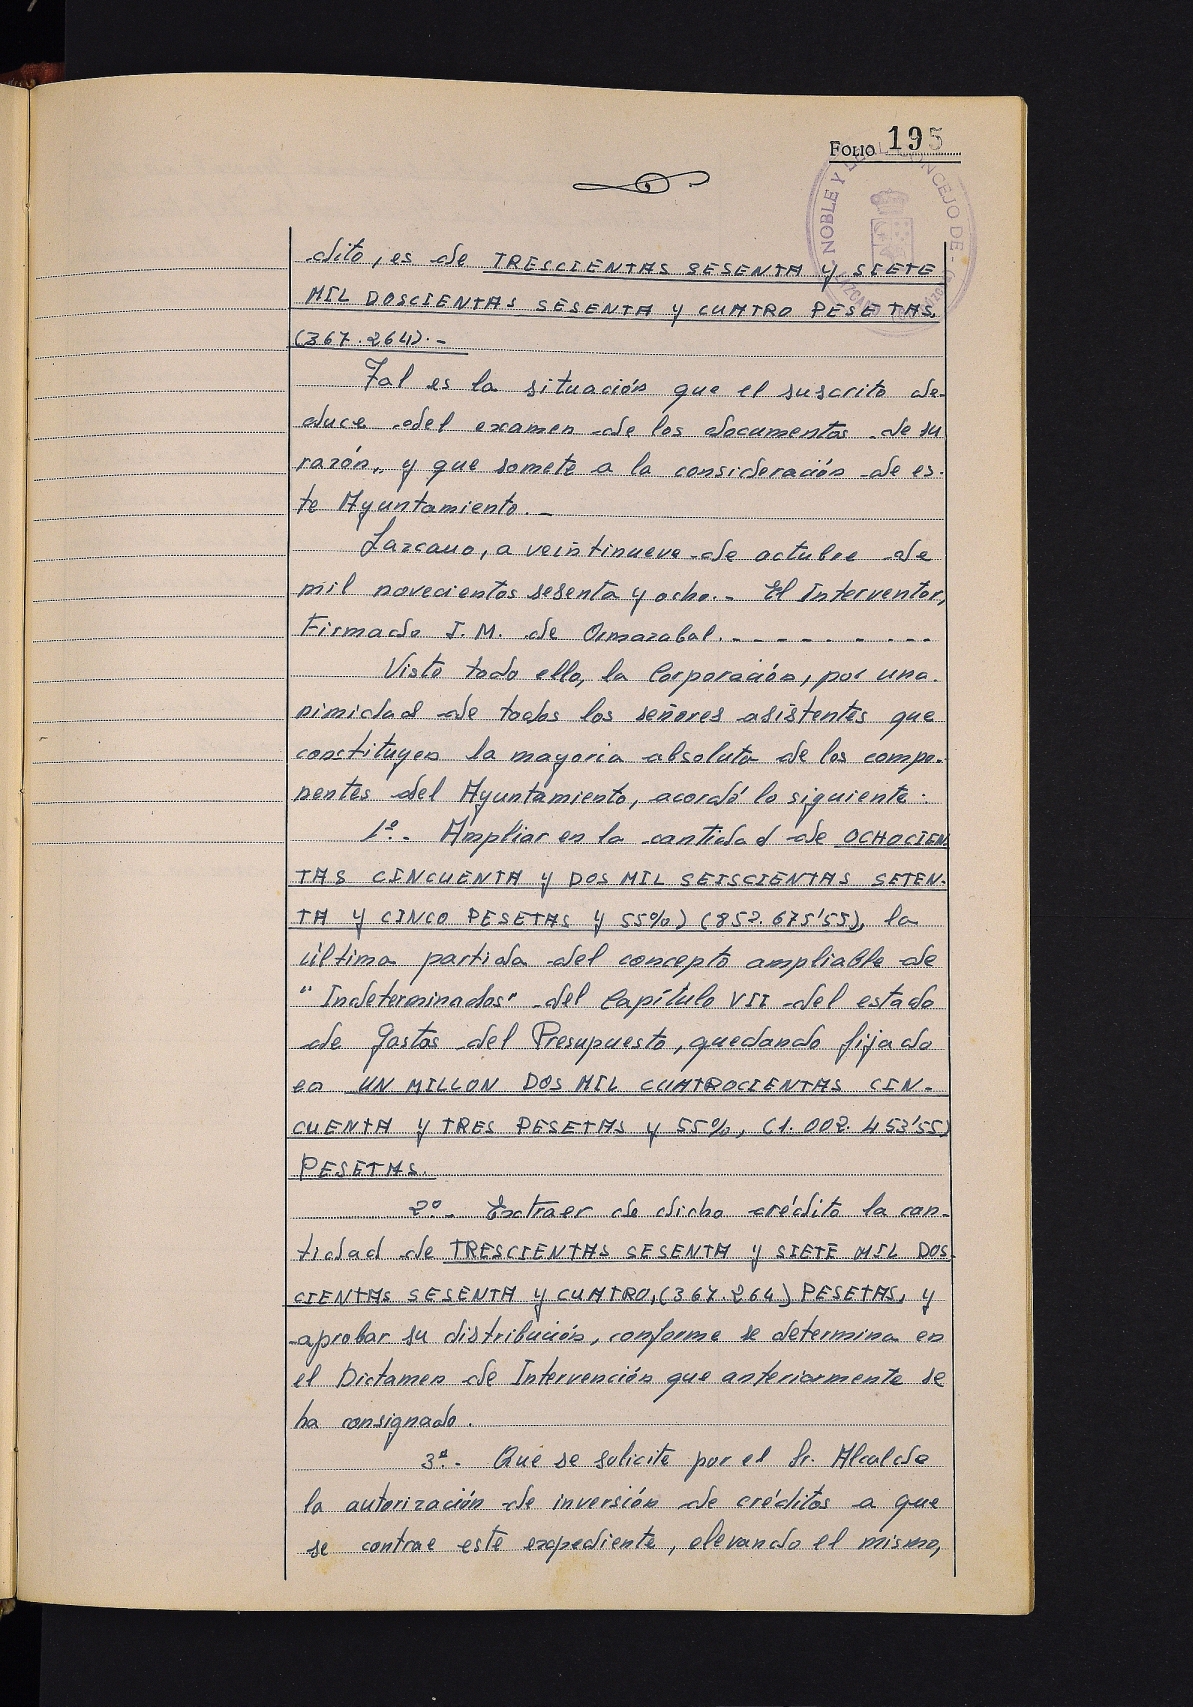 FOLIO 195
NOBLE Y LEAL CONCEJO DE
dito, es de TRESCIENTAS SESENTA Y SIETE
MIL DOSCIENTAS SESENTA Y CUATRO PESETAS,
(367.264).-
Tal es la situación que el suscrito de-
duce del examen de los documentos de su
razón, y que somete a la consideración de es-
te Ayuntamiento.-
Lazcano, a veintinueve de octubre de
mil novecientos sesenta y ocho.- El Interventor,
Firmado J. M. de Ormazabal. - - - - - - - - - -
Visto todo ello, la Corporación, por una-
nimidad de todos los señores asistentes que
constituyen la mayoria absoluta de los compo-
nentes del Ayuntamiento, acordó lo siguiente:
1º.- Ampliar en la cantidad de OCHOCIEN
TAS CINCUENTA Y DOS MIL SEISCIENTAS SETEN-
TA Y CINCO PESETAS Y 55%) (852.675'55), la
última partida del concepto ampliable de
"Indeterminados" del Capítulo VII del estado
de Gastos del Presupuesto, quedando fijado
en UN MILLON DOS MIL CUATROCIENTAS CIN-
CUENTA Y TRES PESETAS Y 55%, (1.002.453'55)
PESETAS.
2º.- Extraer de dicho crédito la can-
tidad de TRESCIENTAS SESENTA Y SIETE MIL DOS-
CIENTAS SESENTA Y CUATRO, (367.264) PESETAS, y
aprobar su distribución, conforme se determina en
el Dictamen de Intervención que anteriormente se
ha consignado.
3º.- Que se solicite por el Sr. Alcalde
la autorización de inversión de créditos a que
se contrae este expediente, elevando el mismo,